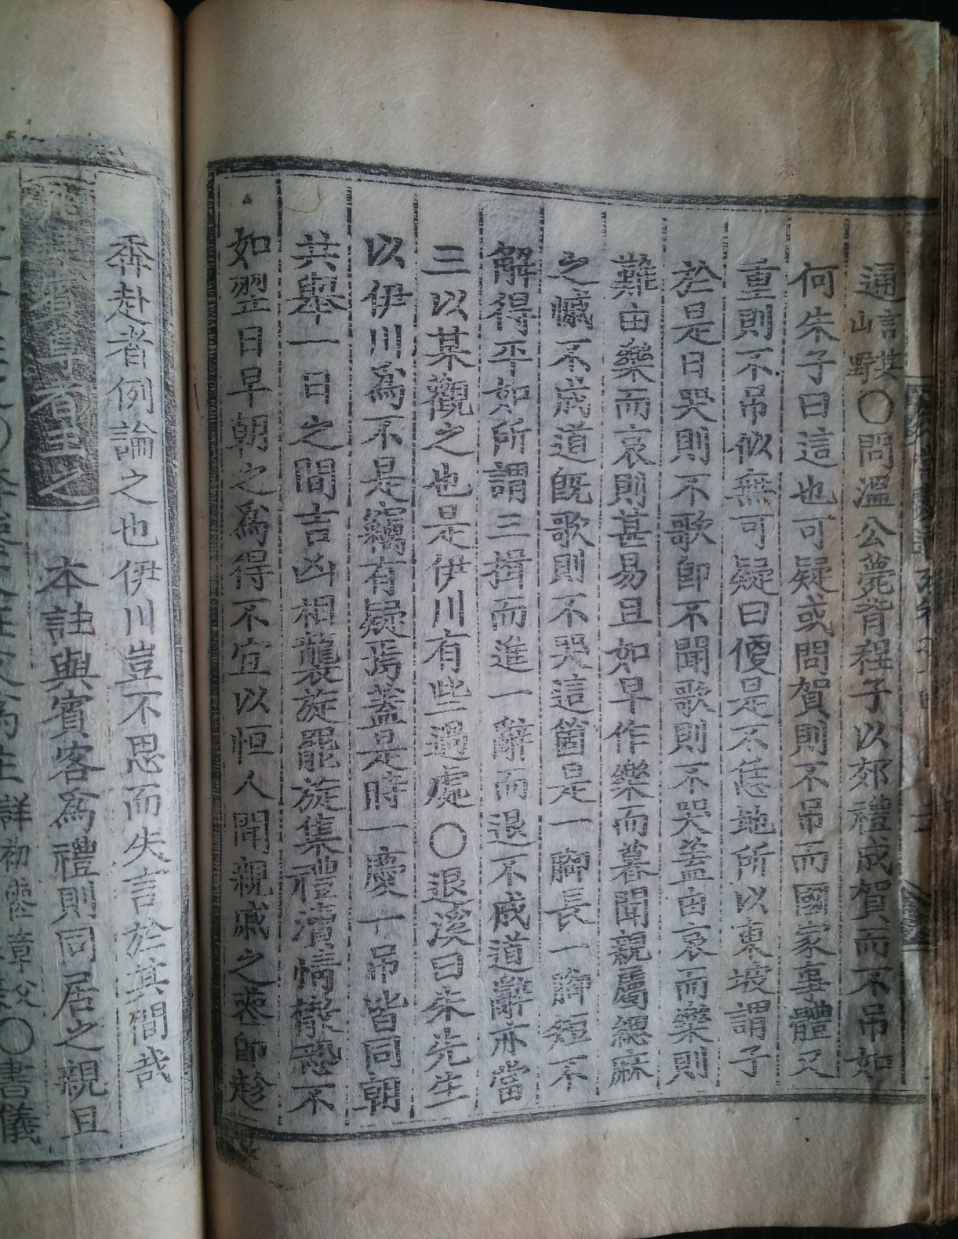 通言古某騂〇問溫公薨背程子以郊禮成賀而不吊如
何朱子曰這也可疑或問賀則不吊而國家事體又
重則不吊似無可疑曰便是不恁地所以東坡謂子
於是日哭則不歌卽不聞歌則不哭蓋由哀而樂則
難由樂而哀則甚易且如早作樂而暮聞親屬緦麻
之慽不成道旣歌則不哭這箇是一脚長一脚短不
解得平如所謂三揖而進一辭而退不成道辭亦當
三以某觀之也是伊川有些過處〇退溪曰朱先生
以伊川爲不是竊有疑焉蓋是時一慶一吊皆同朝
共擧一日之間吉凶相襲旋罷旋集禮瀆情散恐不
如翌日早朝之爲得不宜以恒人聞親戚之喪卽趁
奔赴者例論之也伊川豈不思而失言於其間哉
本註與賓客爲禮則同居之親且
〇書儀